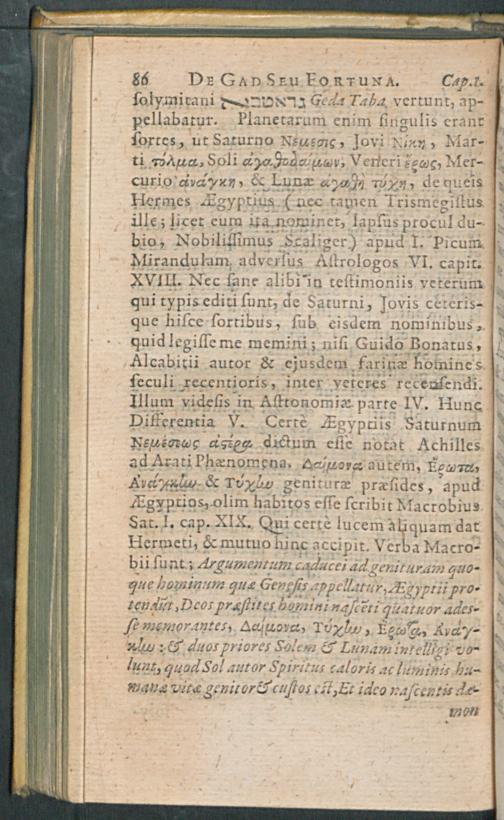 86 DE GAD SEU FORTUNA. Cap.I.
solymitani גדא טבא Geda Taba vertunt, ap-
pellabatur. Planetarum enim singulis erant
sortes, ut Saturno Νέμεσις, Jovi Νίκη, Mar-
ti τόλμα, Soli ἀγαθοδαίμων, Veneri ἔρως, Mer-
curio ἀνάγκη, & Lunæ ἀγαθὴ τύχη, de queis
Hermes Ægyptius (nec tamen Trismegistus
ille; licet eum ita nominet, lapsus procul du-
bio, Nobilissimus Scaliger) apud I. Picum
Mirandulam adversus Astrologos VI. capit.
XVIII. Nec sane alibi in testimoniis veterum
qui typis editi sunt, de Saturni, Jovis ceteris-
que hisce sortibus, sub eisdem nominibus,
quid legisse me memini; nisi Guido Bonatus,
Alcabitii autor & ejusdem farinæ homines
seculi recentioris, inter veteres recensendi.
Illum videsis in Astronomiæ parte IV. Hunc
Differentia V. Certè Ægyptiis Saturnum
Νεμέσεως ἀστέρα dictum esse notat Achilles
ad Arati Phænomena. Δαίμονα autem, Ἔρωτα,
Ἀνάγκην & Τύχην genituræ præsides, apud
Ægyptios, olim habitos esse scribit Macrobius
Sat. I. cap. XIX. Qui certè lucem aliquam dat
Hermeti, & mutuo hinc accipit. Verba Macro-
bii sunt; Argumentum caducei ad genituram quo-
que hominum quæ Genesis appellatur, Ægyptii pro-
tendũt, Deos præstites homini nascẽti quatuor ades-
se memorantes, Δαίμονα, Τύχην, Ἔρωτα, Ἀνάγ-
κην: & duos priores Solem & Lunam intelligi vo-
lunt, quod Sol autor Spiritus caloris ac luminis hu-
manæ vitæ genitor & custos est, Et ideo nascentis dæ-
mon